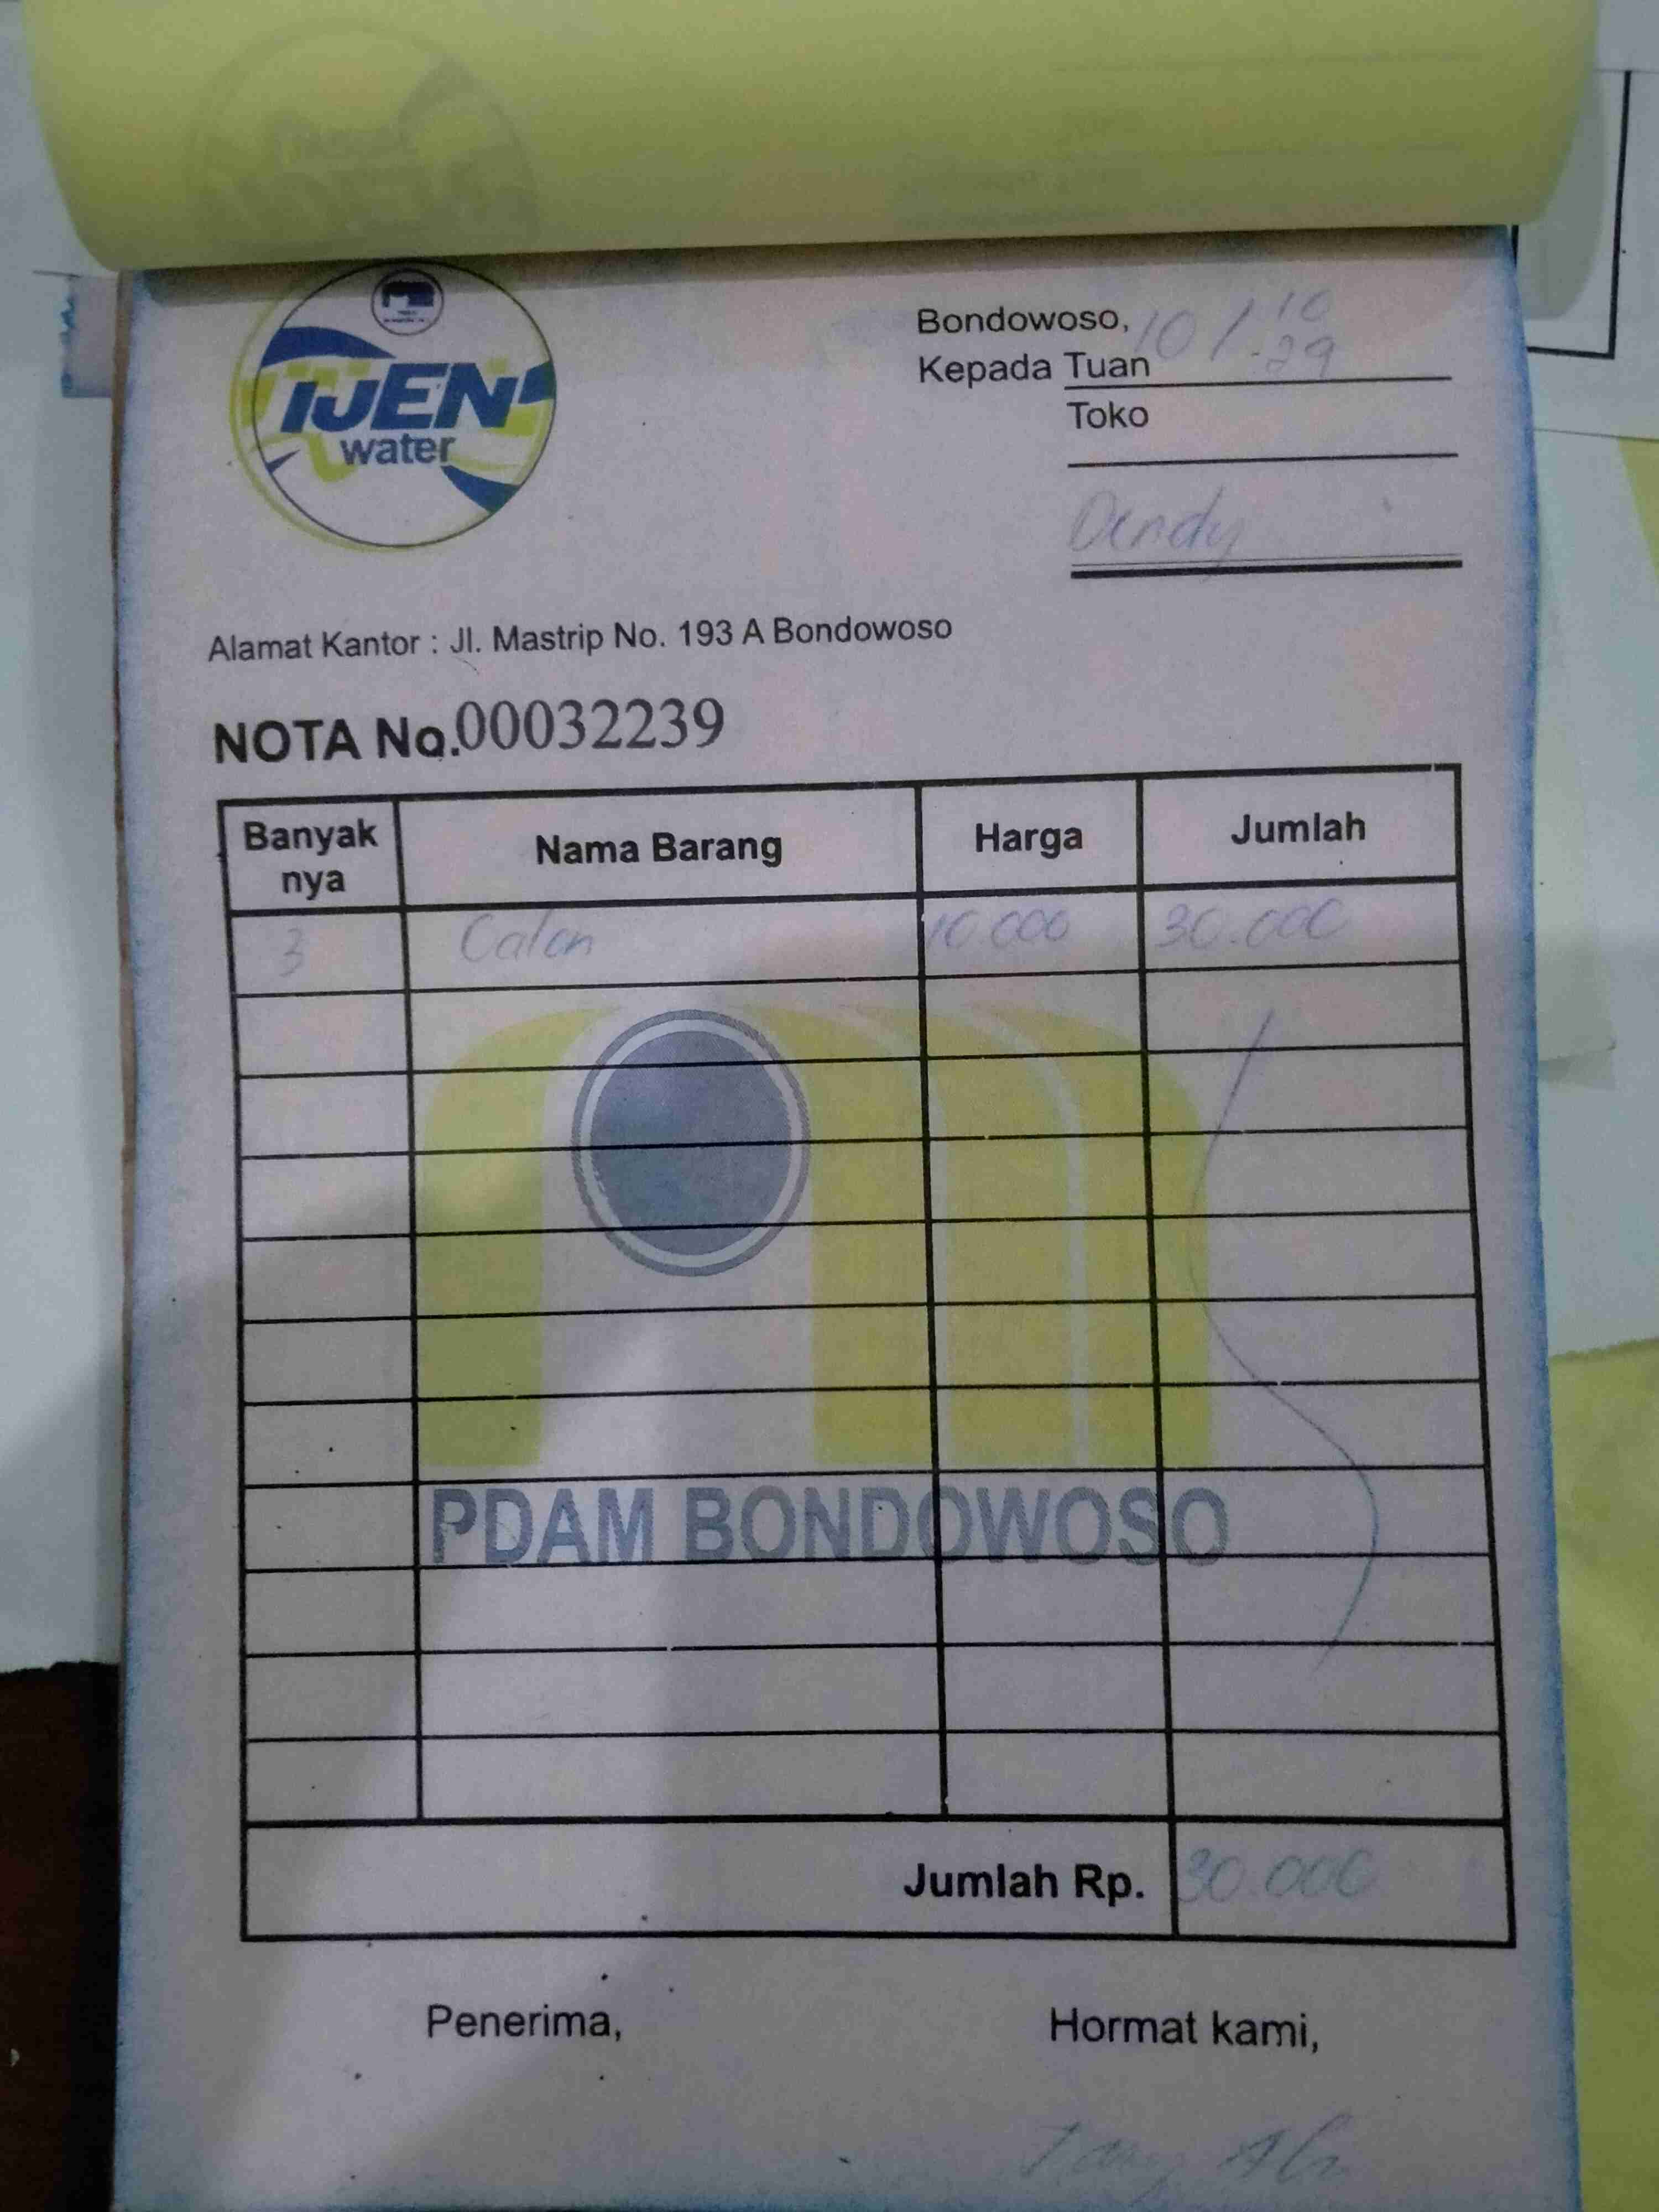 IJEN
water
Bondowoso, 10 / 10
-29
Kepada Tuan
Toko
Dendy
Alamat Kantor : Jl. Mastrip No. 193 A Bondowoso
NOTA No. 00032239
Banyak nya Nama Barang Harga Jumlah
3 Galon 10.000 30.000
PDAM BONDOWOSO
Jumlah Rp. 30.000
Penerima, Hormat kami,